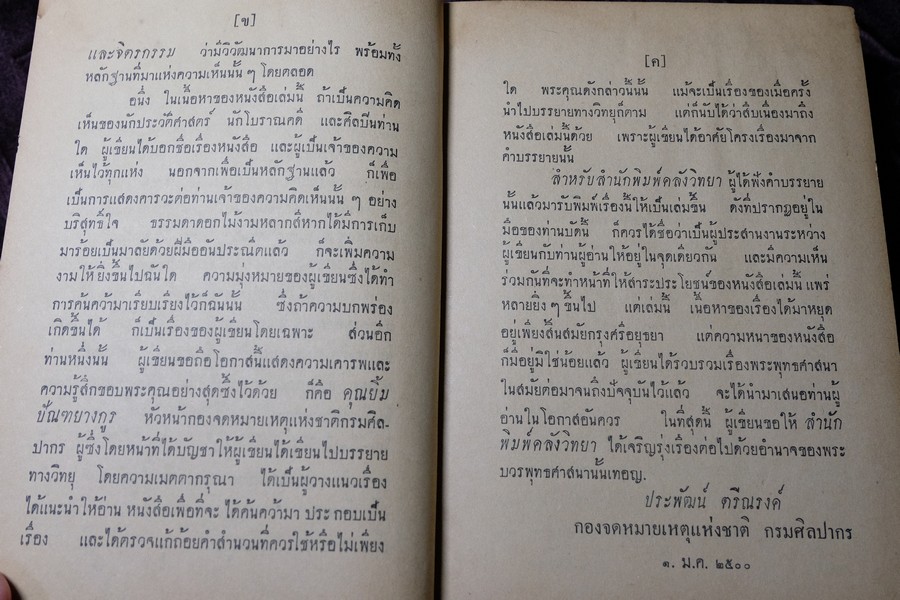 [ข]
และจิตรกรรม ว่ามีวิวัฒนาการมาอย่างไร พร้อมทั้ง
หลักฐานที่มาแห่งความเห็นนั้น ๆ โดยตลอด
อนึ่ง ในเนื้อหาของหนังสือเล่มนี้ ถ้าเป็นความคิด
เห็นของนักประวัติศาสตร์ นักโบราณคดี และศิลปินท่าน
ใด ผู้เขียนได้บอกชื่อเรื่องหนังสือ และผู้เป็นเจ้าของความ
เห็นไว้ทุกแห่ง นอกจากเพื่อเป็นหลักฐานแล้ว ก็เพื่อ
เป็นการแสดงคารวะต่อท่านเจ้าของความคิดเห็นนั้น ๆ อย่าง
บริสุทธิ์ใจ ธรรมดาดอกไม้งามหลากสีหากได้มีการเก็บ
มาร้อยเป็นมาลัยด้วยฝีมืออันประณีตแล้ว ก็จะเพิ่มความ
งามให้ยิ่งขึ้นไปฉันใด ความมุ่งหมายของผู้เขียนซึ่งได้ทำ
การค้นคว้ามาเรียบเรียงไว้ก็ฉันนั้น ซึ่งถ้าความบกพร่อง
เกิดขึ้นได้ ก็เป็นเรื่องของผู้เขียนโดยเฉพาะ ส่วนอีก
ท่านหนึ่งนั้น ผู้เขียนขอถือโอกาสนี้แสดงความเคารพและ
ความรู้สึกขอบพระคุณอย่างสุดซึ้งไว้ด้วย ก็คือ คุณยิ้ม
ปัณฑยางกูร หัวหน้ากองจดหมายเหตุแห่งชาติกรมศิล-
ปากร ผู้ซึ่งโดยหน้าที่ได้บัญชาให้ผู้เขียนได้เขียนไปบรรยาย
ทางวิทยุ โดยความเมตตากรุณา ได้เป็นผู้วางแนวเรื่อง
ได้แนะนำให้อ่าน หนังสือเพื่อที่จะ ได้ค้นคว้ามา ประ กอบเป็น
เรื่อง และได้ตรวจแก้ถ้อยคำสำนวนที่ควรใช้หรือไม่เพียง
[ค]
ใด พระคุณดังกล่าวนั้นนี้ แม้จะเป็นเรื่องของเมื่อครั้ง
นำไปบรรยายทางวิทยุก็ตาม แต่ก็นับได้ว่าสืบเนื่องมาถึง
หนังสือเล่มนี้ด้วย เพราะผู้เขียนได้อาศัยโครงเรื่องมาจาก
คำบรรยายนั้น
สำหรับสำนักพิมพ์คลังวิทยา ผู้ได้ฟังคำบรรยาย
นั้นแล้วมารับพิมพ์เรื่องนี้ให้เป็นเล่มขึ้น ดังที่ปรากฏอยู่ใน
มือของท่านบัดนี้ ก็ควรได้ชื่อว่าเป็นผู้ประสานงานระหว่าง
ผู้เขียนกับท่านผู้อ่านให้อยู่ในจุดเดียวกัน และมีความเห็น
ร่วมกันที่จะทำหน้าที่ให้สาระประโยชน์ของหนังสือเล่มนี้ แพร่
หลายยิ่ง ๆ ขึ้นไป แต่เล่มนี้ เนื้อหาของเรื่องได้มาหยุด
อยู่เพียงสิ้นสมัยกรุงศรีอยุธยา แต่ความหนาของหนังสือ
ก็มีอยู่มิใช่น้อยแล้ว ผู้เขียนได้รวบรวมเรื่องพระพุทธศาสนา
ในสมัยต่อมาจนถึงปัจจุบันไว้แล้ว จะได้นำมาเสนอท่านผู้
อ่านในโอกาสอันควร ในที่สุดนี้ ผู้เขียนขอให้ สำนัก
พิมพ์คลังวิทยา ได้เจริญรุ่งเรืองต่อไปด้วยอำนาจของพระ
บวรพุทธศาสนานั้นเทอญ.
ประพัฒน์ ตรีณรงค์
กองจดหมายเหตุแห่งชาติ กรมศิลปากร
๑. ม.ค. ๒๕๐๐